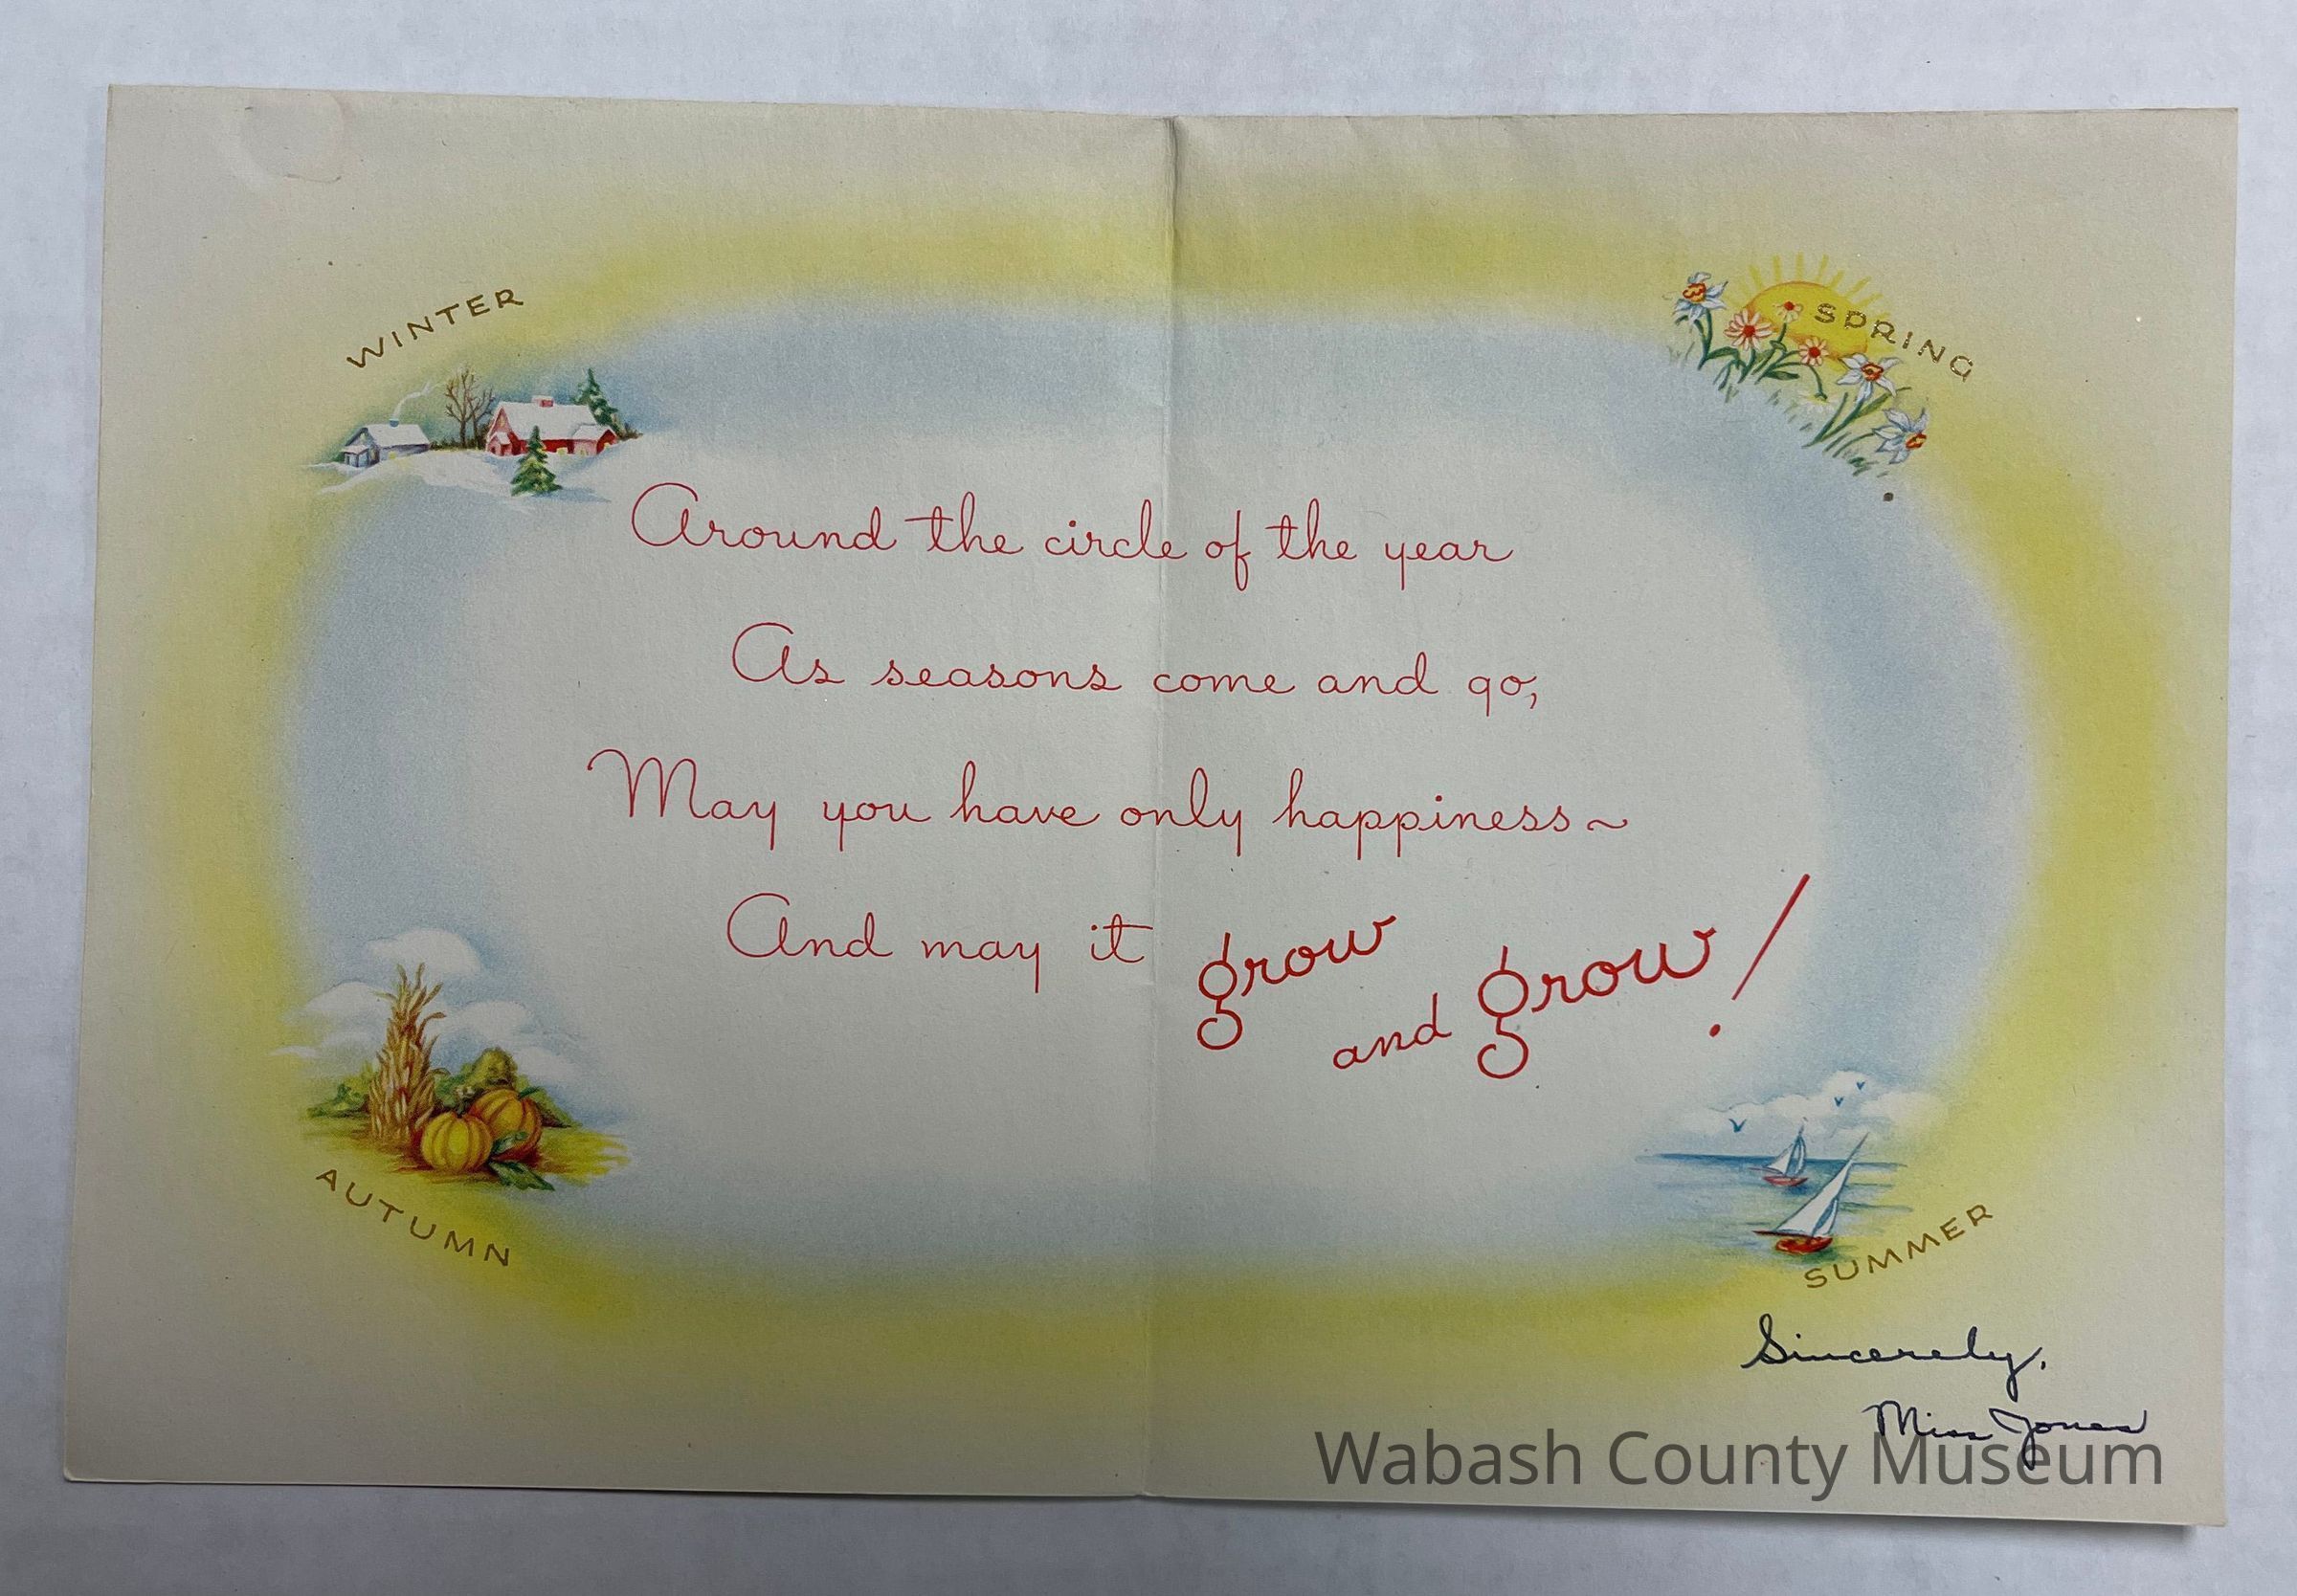 WINTER
SPRING
Around the circle of the year
As seasons come and go,
May you have only happiness~
And may it grow
and grow!
AUTUMN
SUMMER
Sincerely,
Miss Jones
Wabash County Museum